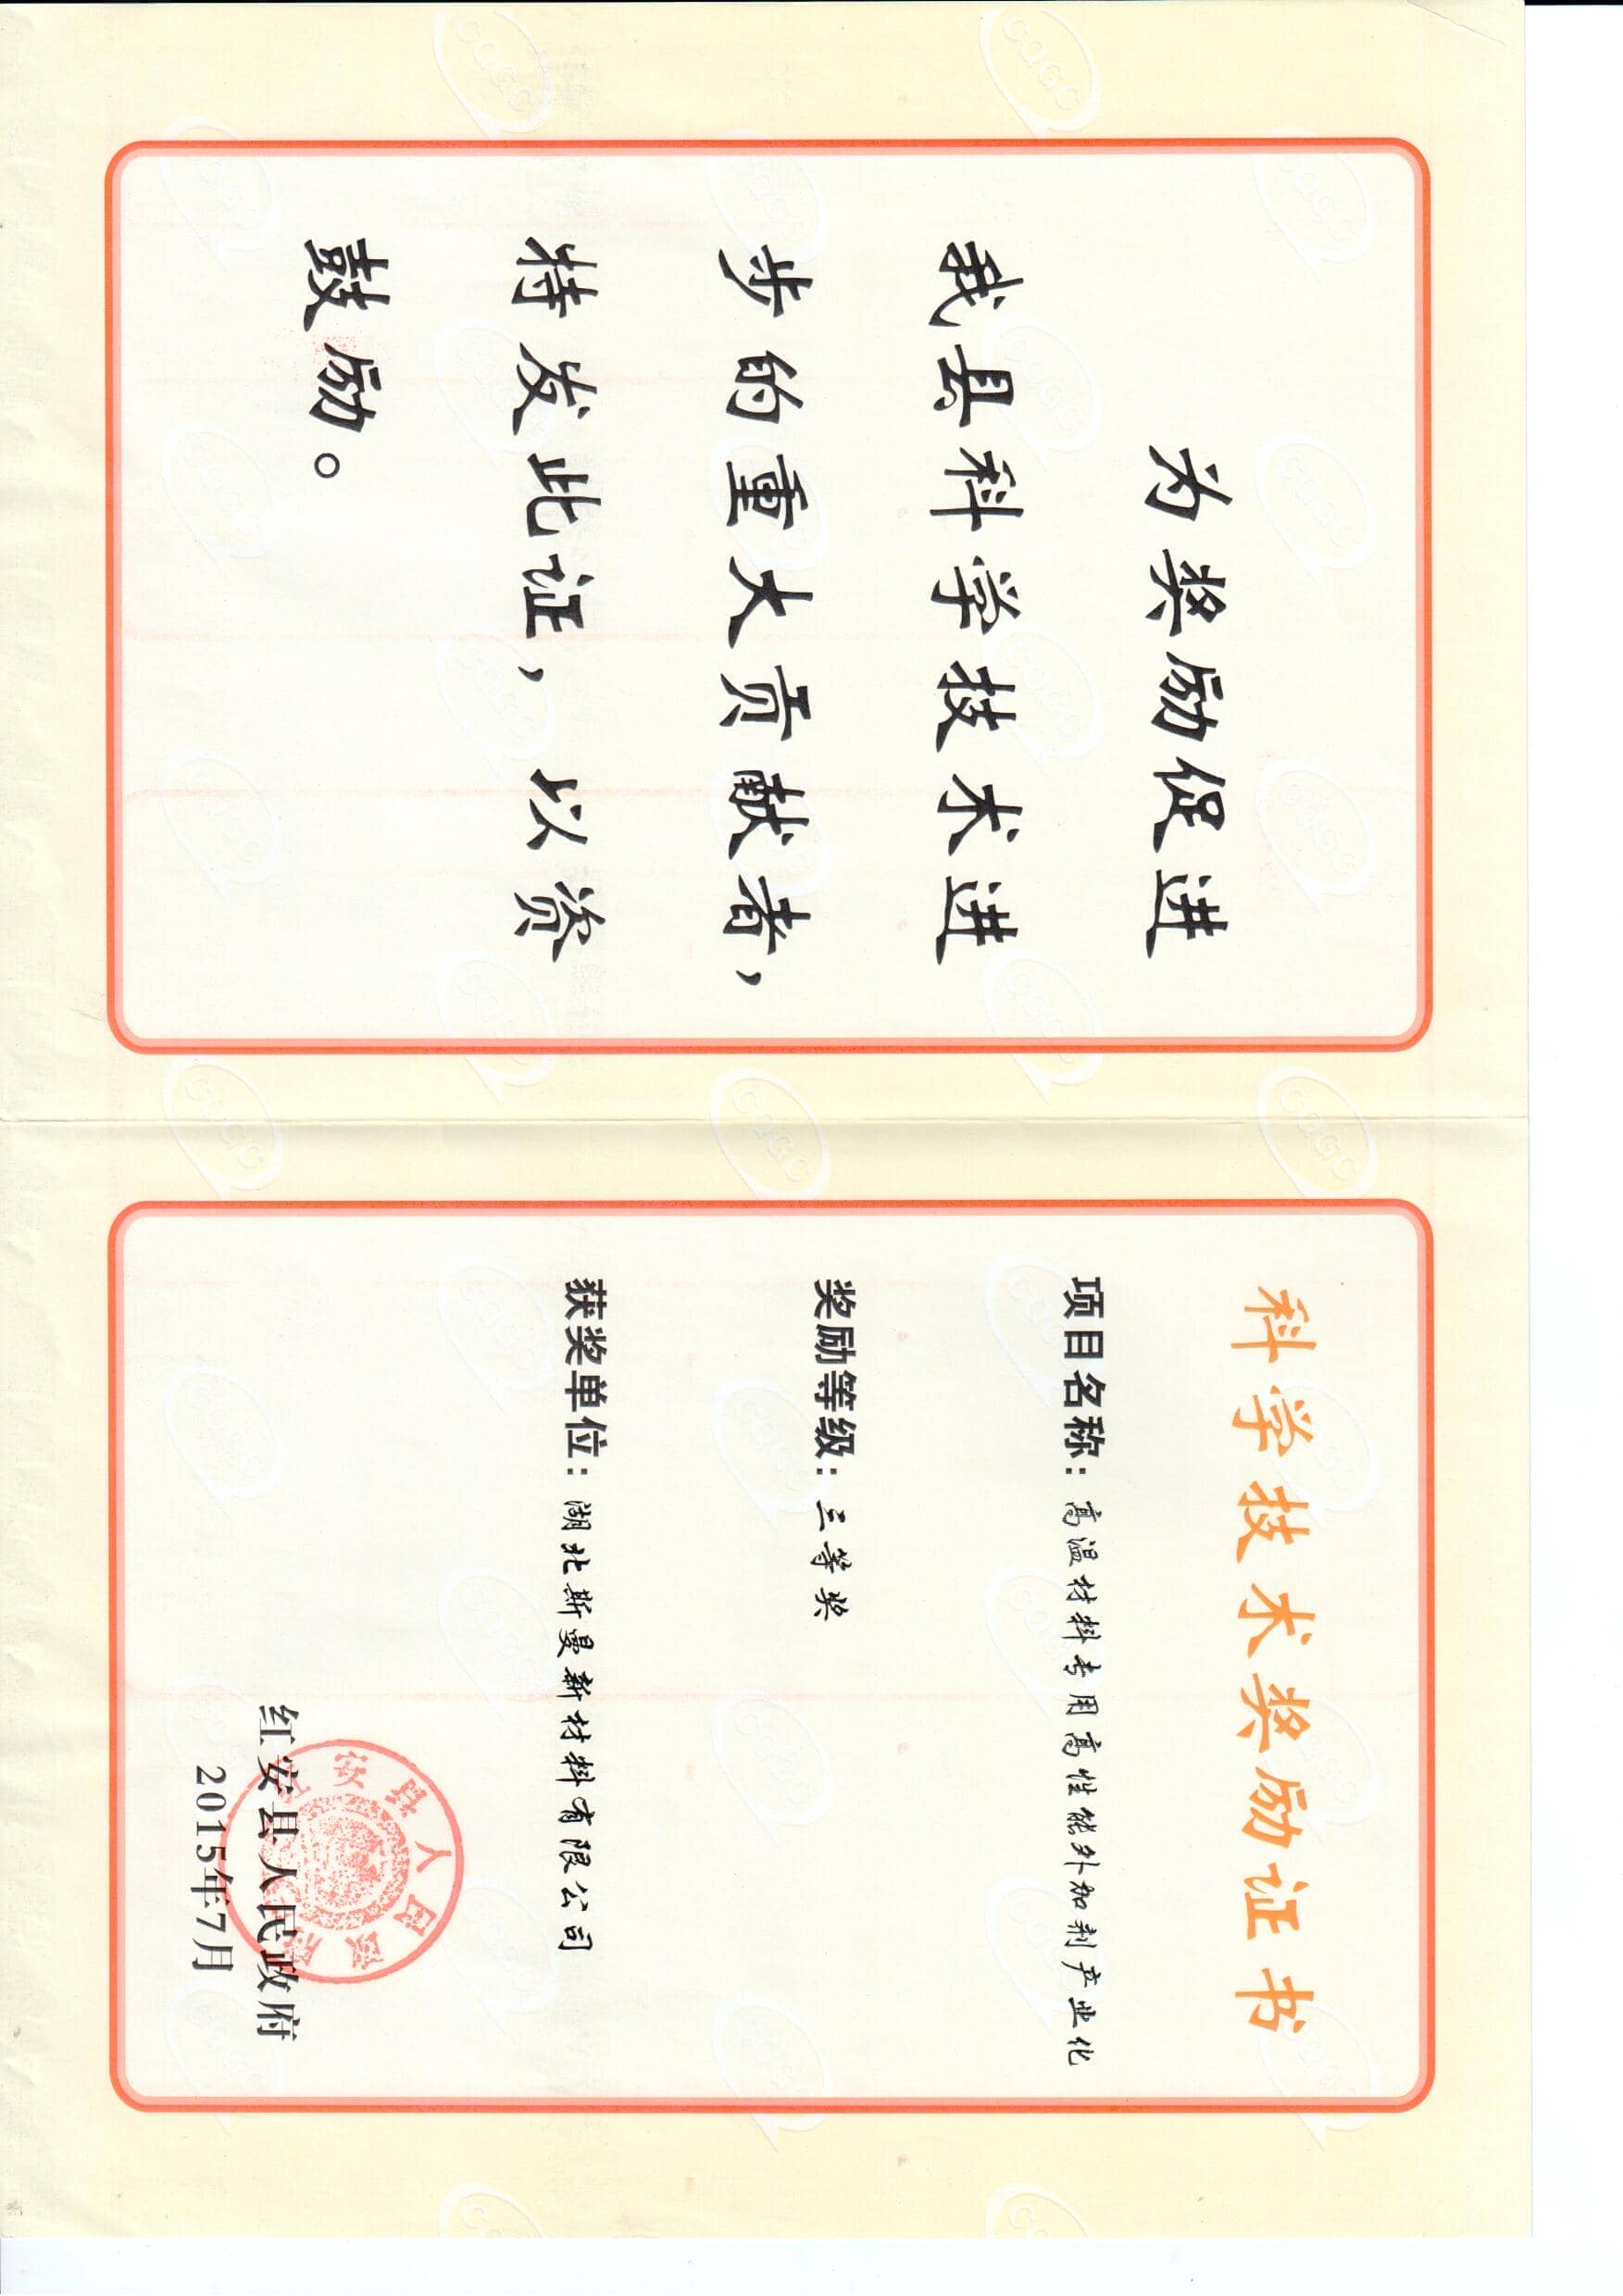 为奖励促进
我县科学技术进
步的重大贡献者，
特发此证，以资
鼓励。
科学技术奖励证书
项目名称：高温材料专用高性能外加剂产业化
奖励等级：三等奖
获奖单位：湖北斯曼新材料有限公司
红安县人民政府
2015年7月
红安县人民政府
CQGC